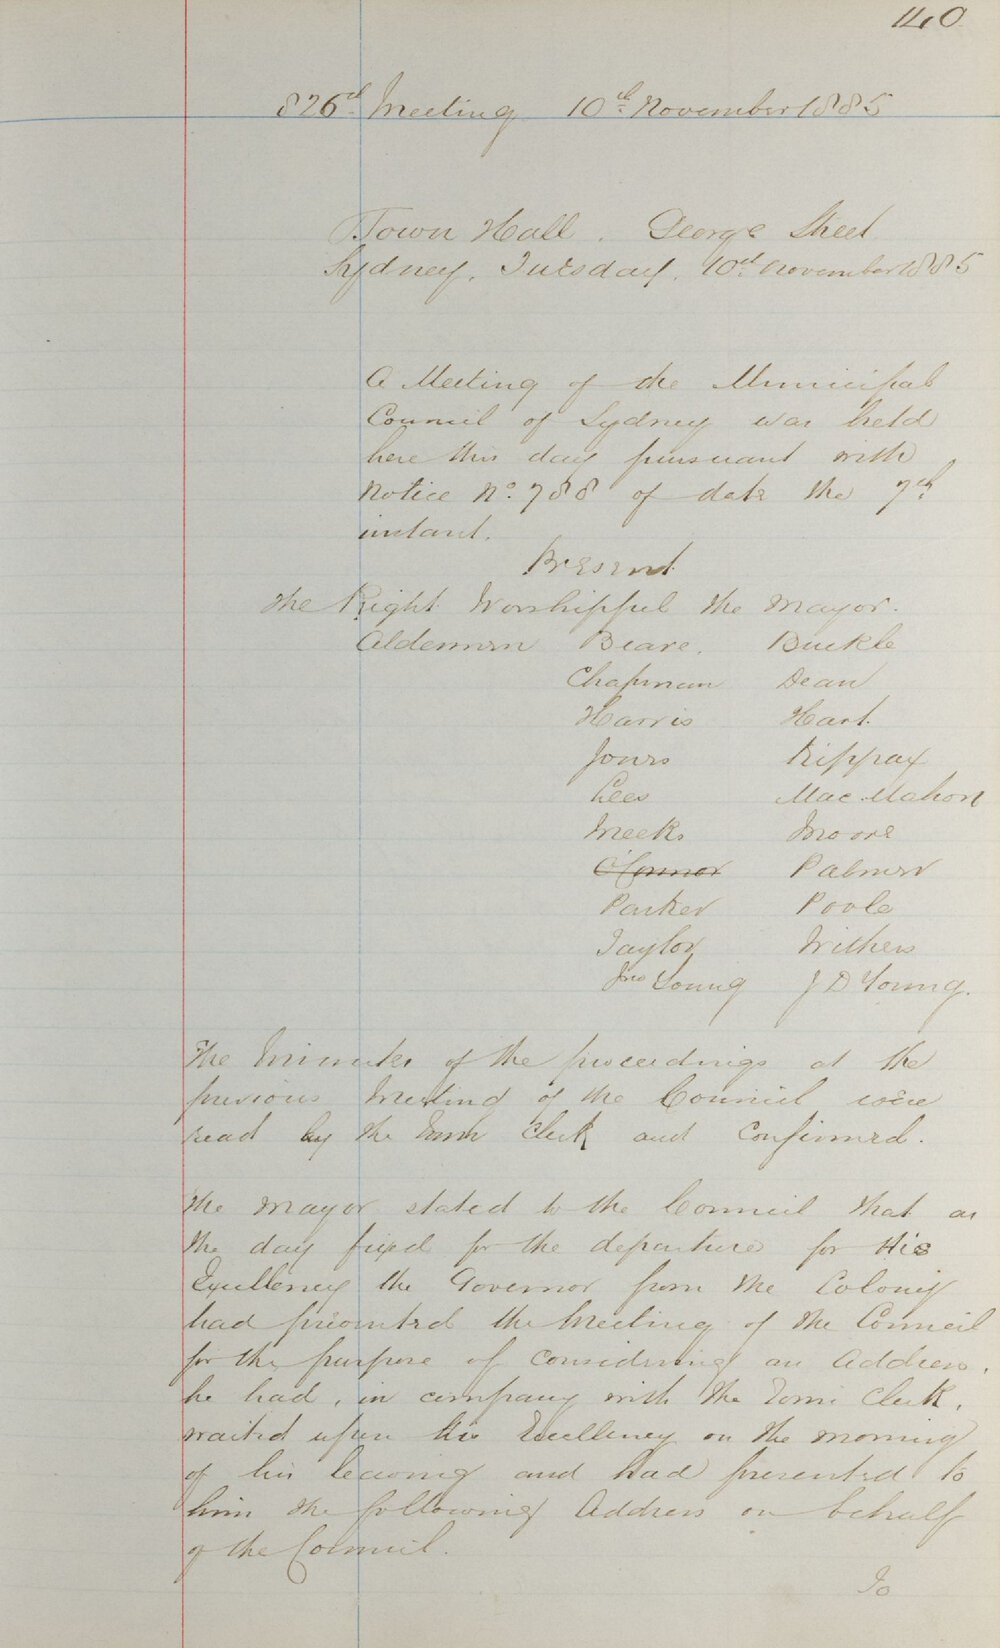 140
826th Meeting 10th November 1885
Town Hall. George Street
Sydney, Tuesday, 10th November 1885
A Meeting of the Municipal
Council of Sydney was held
here this day pursuant with
Notice No. 788 of date the 7th
instant.
Present
The Right Worshipful the Mayor.
Aldermen Beare. Buckle
Chapman Dean
Harris Hart.
Jones Kippax
Lees MacMahon
Meeks Moore
O'Connor Palmer
Parker Poole
Taylor Withers
Jno Young J D Young.
The Minutes of the proceedings at the
previous Meeting of the Council were
read by the Town Clerk and Confirmed.
The Mayor stated to the Council that as
the day fixed for the departure for His
Excellency the Governor from the Colony
had prevented the Meeting of the Council
for the purpose of considering an Address,
he had, in company with the Town Clerk,
waited upon His Excellency on the morning
of his leaving and had presented to
him the following Address on behalf
of the Council.
To